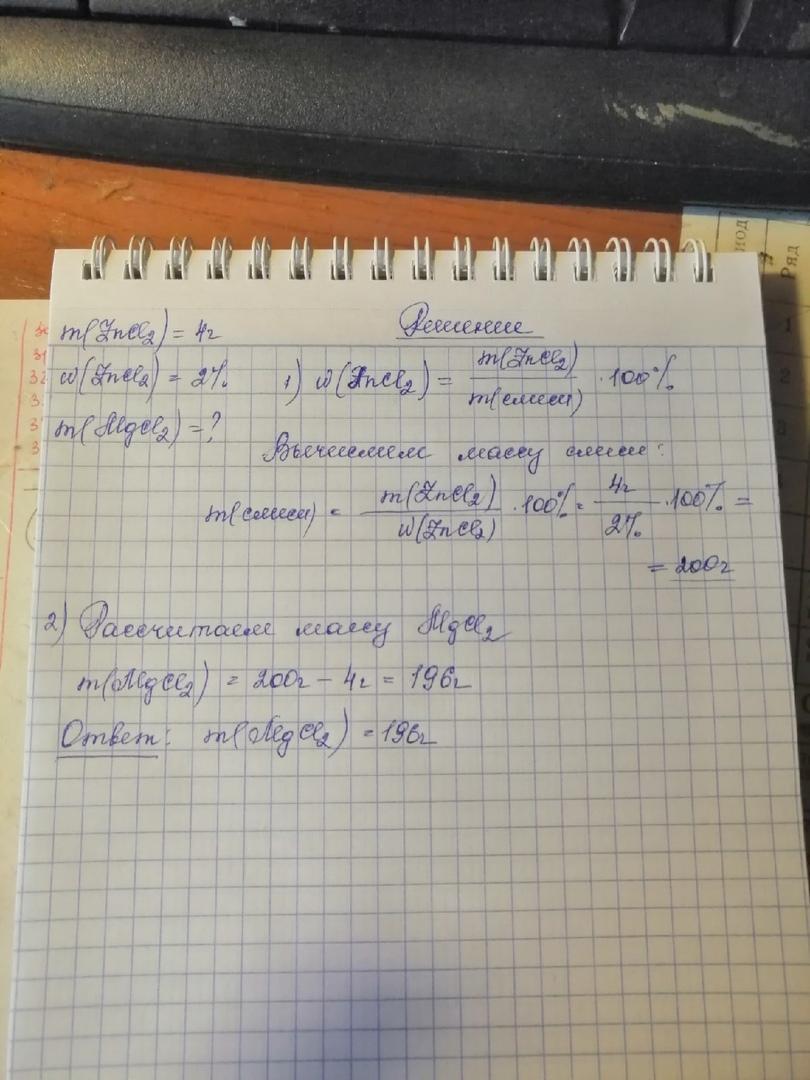 m(ZnCl₂) = 4г
Решение
w(ZnCl₂) = 2%
1) w(ZnCl₂) = m(ZnCl₂) / m(смеси) · 100%
m(MgCl₂) = ?
Вычислим массу смеси:
m(смеси) = m(ZnCl₂) / w(ZnCl₂) · 100% = 4г / 2% · 100% =
= 200г
2) Рассчитаем массу MgCl₂
m(MgCl₂) = 200г - 4г = 196г
Ответ: m(MgCl₂) = 196г
Ряд
1
2
3